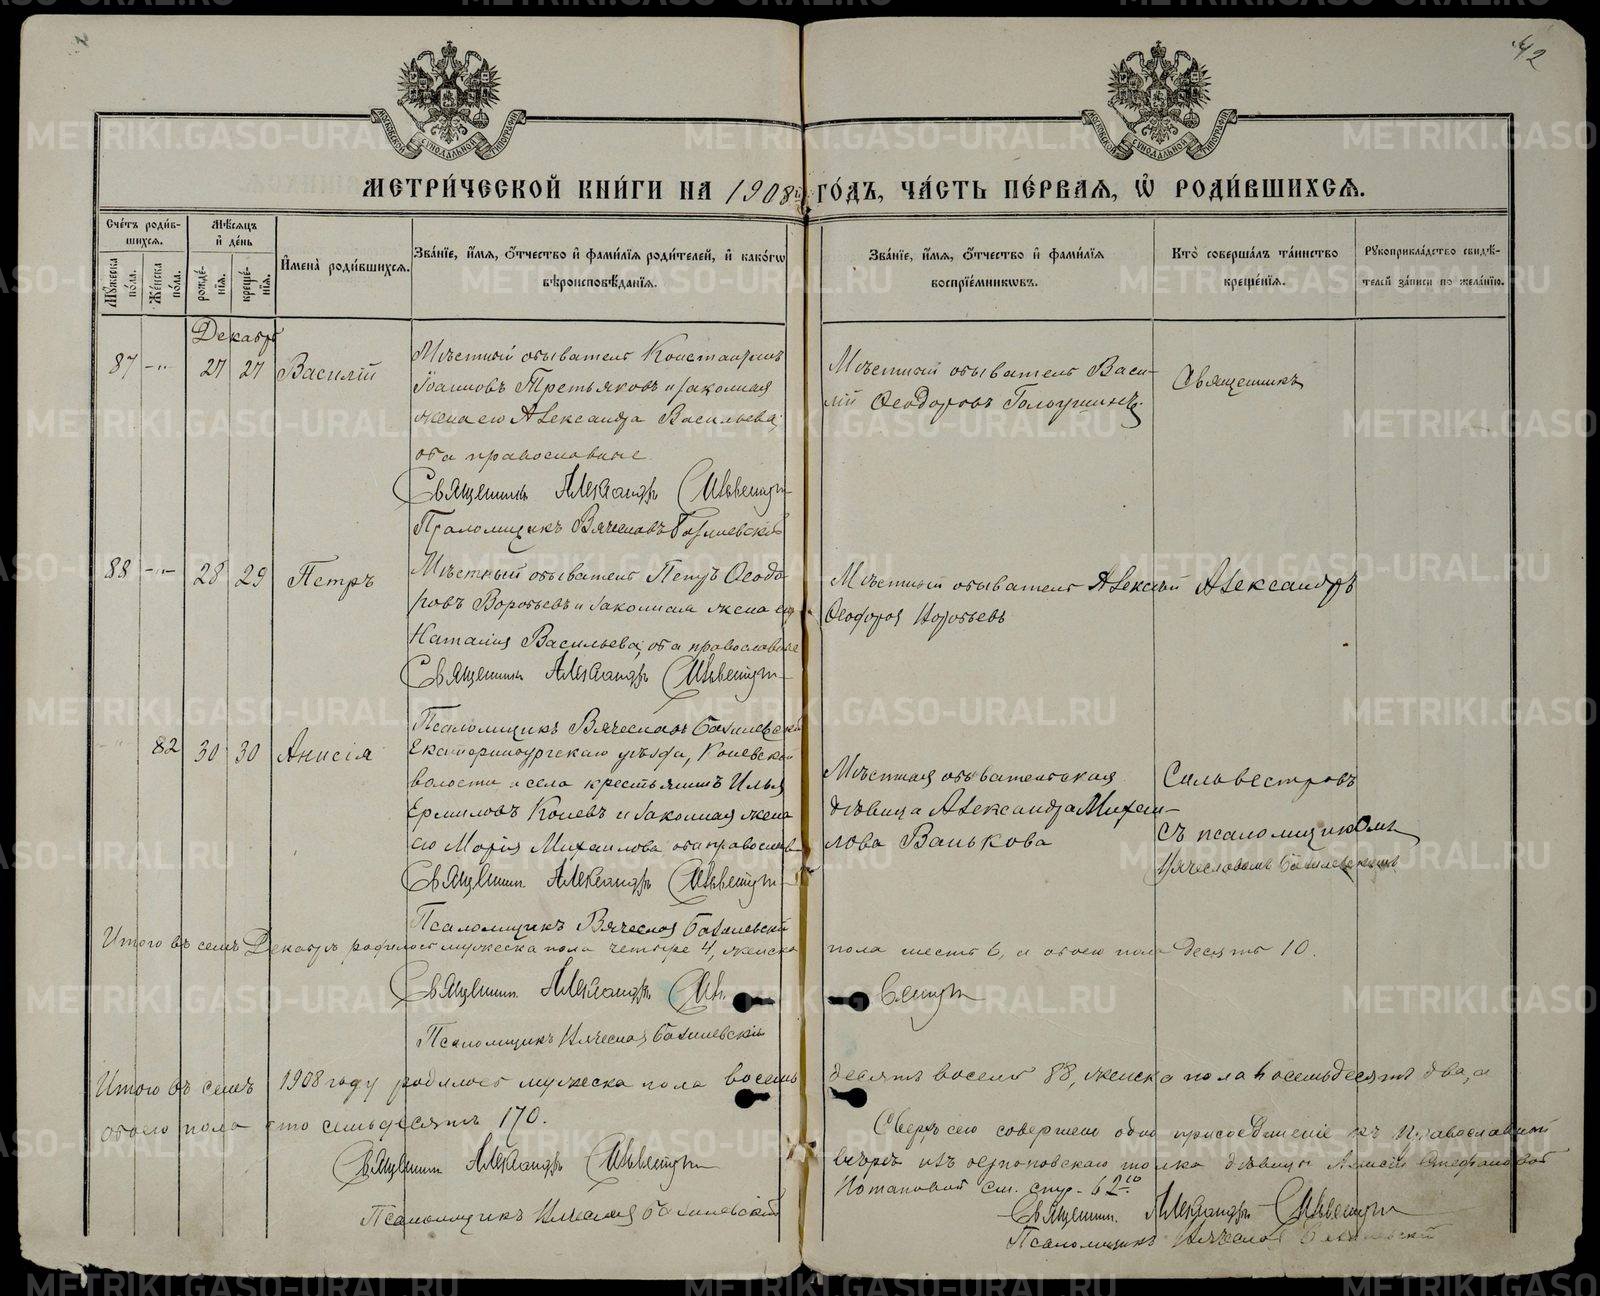 42
МЕТРИ́ЧЕСКОЙ КНИ́ГИ НА 1908й ГО́ДЪ, ЧА́СТЬ ПЕ́РВАЯ, Ѽ РОДИ́ВШИХСЯ.
Сче́тъ роди́в-
шихся.
Мѣ́сяцъ
и҆ де́нь
Мꙋ́жеска по́ла.
Же́нска по́ла.
рожде́-
нїѧ.
креще́-
нїѧ.
И҆мена̀ роди́вшихся.
Зва́нїе, и҆́мѧ, ѻ҆́тчество и҆ фами́лїѧ роди́телей, и҆ како́гѡ
вѣроисповѣ́данїѧ.
Зва́нїе, и҆́мѧ, ѻ҆́тчество и҆ фами́лїѧ
воспрїе́мникѡвъ.
Кто̀ соверша́лъ та́инство
креще́нїѧ.
Рꙋкоприкла́дство свидѣ́-
телей за́писи по жела́нїю.
Декабрь
87 -"- 27 27 Василій
Мѣстный обыватель Константинъ
Іоанновъ Третьяковъ и законная
жена его Александра Васильева,
оба православные
Священникъ Александръ Сильвестровъ
Псаломщикъ Вячеславъ Базилевскій
Мѣстный обыватель Васи-
лій Ѳеодоровъ
Священникъ
88 -"- 28 29 Петръ
Мѣстный обыватель Петръ Ѳеодо-
ровъ Воробьевъ и законная жена его
Наталія Васильева, оба православные
Священникъ Александръ Сильвестровъ
Псаломщикъ Вячеславъ Базилевскій
Мѣстный обыватель Алексѣй
Ѳеодоровъ Воробьевъ
Александръ
-"- 82 30 30 Анисія
Екатеринбургскаго уѣзда, Коневской
волости и села крестьянинъ Илья
Ермиловъ Коневъ и законная жена
его Марія Михаилова оба православ.
Священник Александръ Сильвестровъ
Псаломщикъ Вячеслав Базилевскій
Мѣстная обывательская
дѣвица Александра Михаи-
лова Ванькова
Сильвестровъ
съ псаломщикомъ
Вячеславомъ Базилевскимъ
Итого въ семъ Декабрѣ родилось мужеска пола четыре 4, женска пола шесть 6, а обоего пола десять 10.
Священник Александръ Сильвестровъ
Псаломщикъ Вячеслав Базилевскій
Итого въ семъ 1908 году родилось мужеска пола восемь десятъ восемь 88, женска пола восемьдесятъ два, а
обоего пола сто семьдесятъ 170.
Священник Александръ Сильвестровъ
Псаломщикъ Вячеслав Базилевскій
Сверхъ сего совершено одно присоединеніе къ Православной
вѣрѣ изъ толка дѣвицы Стефановой
Потаповой см. стр. 62ю
Священник. Александръ Сильвестровъ
Псаломщикъ Вячеслав Базилевскій
METRIKI.GASO-URAL.RU